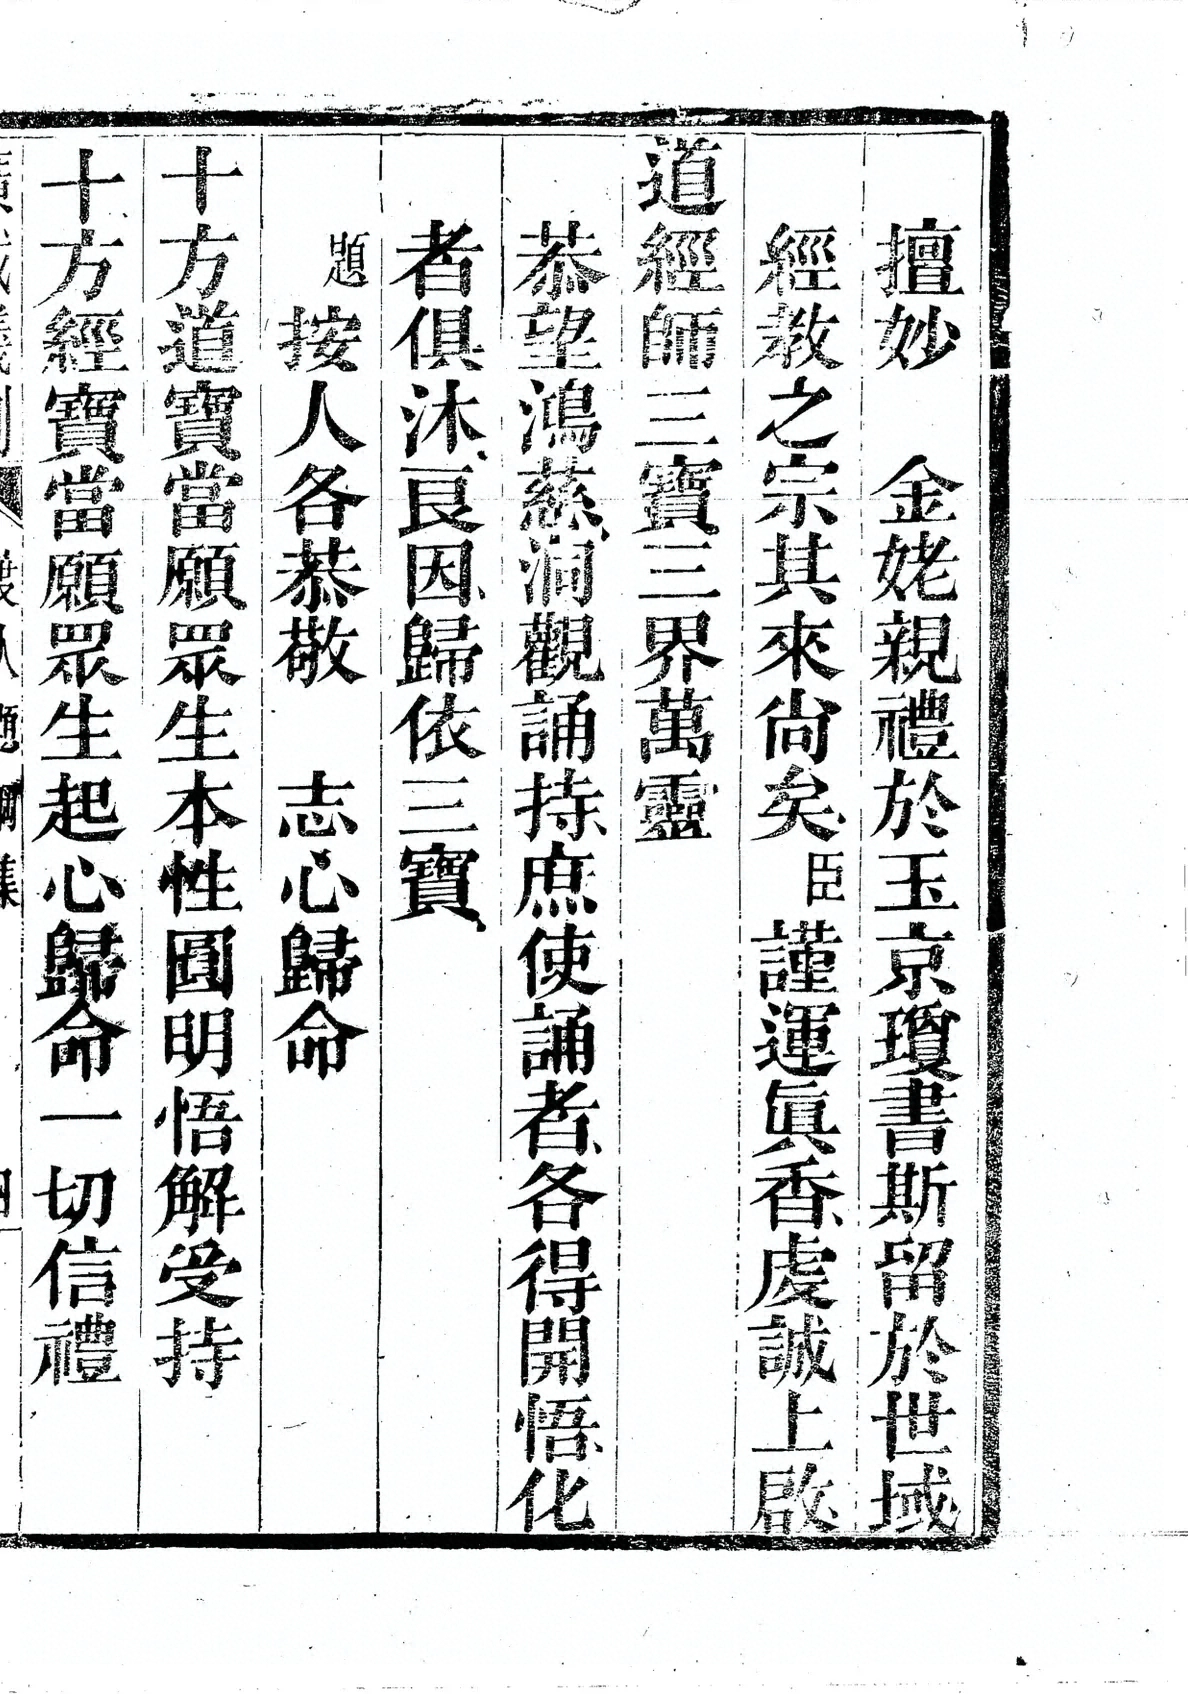 擅妙　金姥親禮於玉京瓊書斯留於世域
經教之宗其來尚矣臣謹運眞香虔誠上啟
道經師三寶三界萬靈
恭望鴻慈洞觀誦持庶使誦者各得開悟化
者俱沐良因歸依三寶
題按人各恭敬　志心歸命
十方道寶當願眾生本性圓明悟解受持
十方經寶當願眾生起心歸命一切信禮